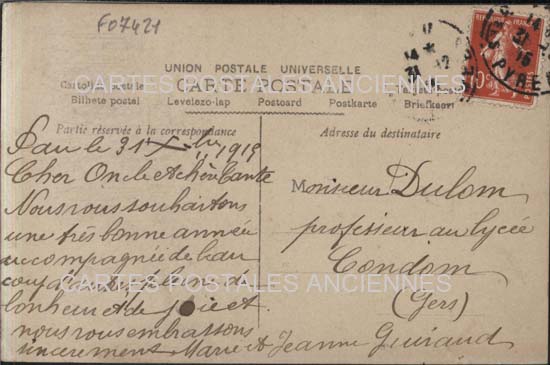 F07421
UNION POSTALE UNIVERSELLE
CARTE POSTALE
Cartolina postale
Bilhete postal Levelezo-lap Postcard Postkarte Briefkaart
CARTES POSTALES ANCIENNES
Partie réservée à la correspondance
Adresse du destinataire
Pau le 31 Xbre 1915
Cher Oncle et chère tante
Nous vous souhaitons
une très bonne année
accompagnée de beau
coup de santé, plein de
bonheur et de joie et
nous vous embrassons
sincèrement Marie et Jeanne Guiraud
Monsieur Dulom
professeur au lycée
Condom
(Gers)
CARTES POSTALES ANCIENNES